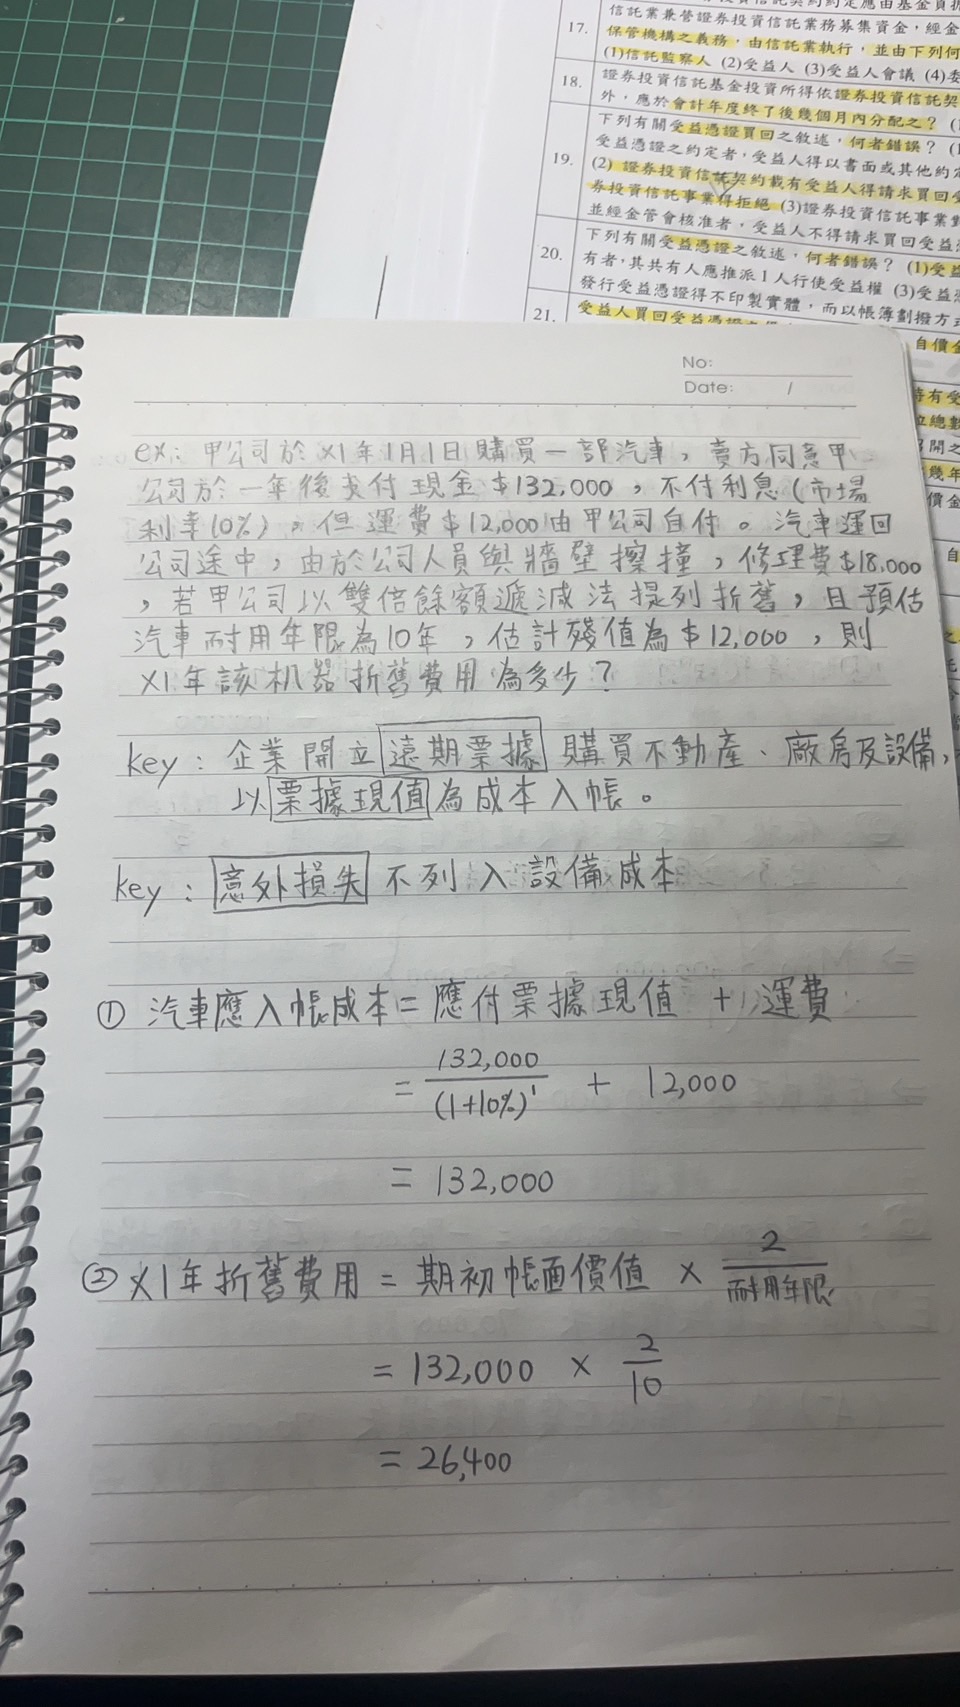 17.
信託業兼營證券投資信託業務募集資金，經金
保管機構之義務，由信託業執行，並由下列何
(1)信託監察人 (2)受益人 (3)受益人會議 (4)委
18.
證券投資信託基金投資所得依證券投資信託契
外，應於會計年度終了後幾個月內分配之？
19.
下列有關受益憑證買回之敘述，何者錯誤？
受益憑證之約定者，受益人得以書面或其他約定
(2) 證券投資信託契約載有受益人得請求買回受
券投資信託事業得拒絕 (3)證券投資信託事業對
並經金管會核准者，受益人不得請求買回受益
20.
下列有關受益憑證之敘述，何者錯誤？ (1)受益
有者，其共有人應推派1人行使受益權 (3)受益憑
發行受益憑證得不印製實體，而以帳簿劃撥方式
21.
受益人買回受益憑證
自價金
No:
Date: /
ex: 甲公司於 X1年1月1日購買一部汽車，賣方同意甲
公司於一年後支付現金$132,000，不付利息(市場
利率10%)。但運費$12,000由甲公司自付。汽車運回
公司途中，由於公司人員與牆壁擦撞，修理費$18,000
，若甲公司以雙倍餘額遞減法提列折舊，且預估
汽車耐用年限為10年，估計殘值為$12,000，則
X1年該机器折舊費用為多少？
key: 企業開立遠期票據購買不動產、廠房及設備，
以票據現值為成本入帳。
key: 意外損失不列入設備成本
① 汽車應入帳成本=應付票據現值 + 運費
= 132,000/(1+10%)¹ + 12,000
= 132,000
② X1年折舊費用 = 期初帳面價值 × 2/耐用年限
= 132,000 × 2/10
= 26,400